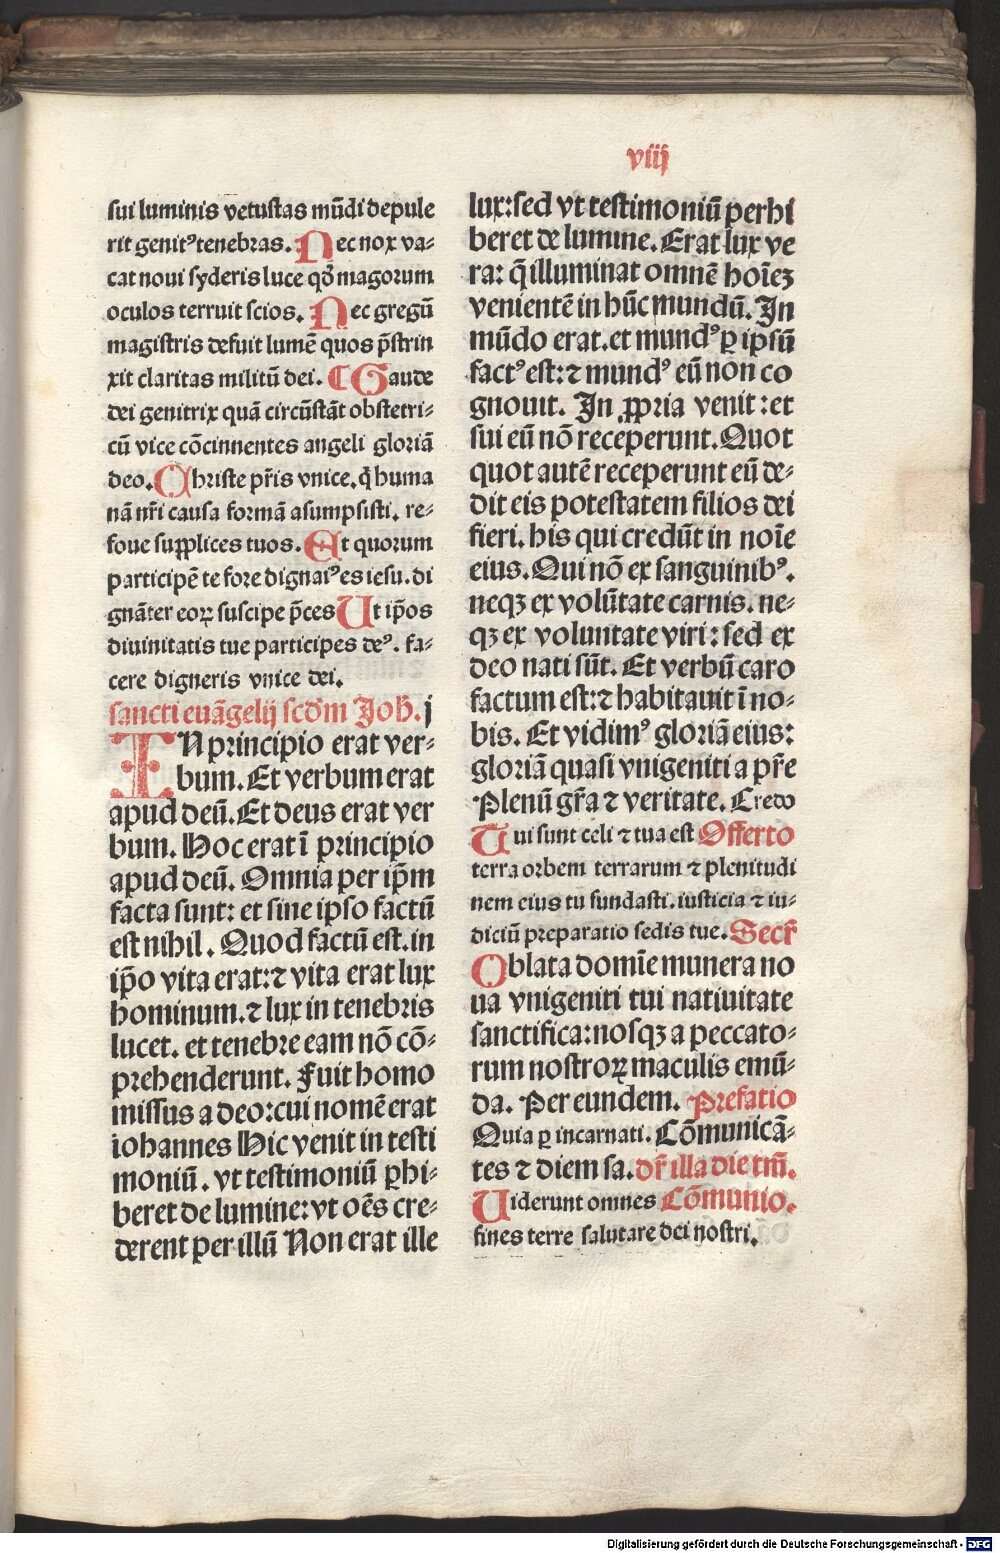 viij
sui luminis vetustas mūdi depule
rit genitꝰ tenebras. Nec nox va⸗
cat noui syderis luce qđ magorum
oculos terruit scios. Nec gregū
magistris defuit lumē quos p̄strin
xit claritas militū dei. ¶ Gaude
dei genitrix quā circūstāt obstetri⸗
cū vice cōcinnentes angeli gloriā
deo. Christe pr̄is vnice. q̇ huma
nā nr̄i causa formā asumpsisti. re⸗
foue supplices tuos. Et quorum
participē te fore dignaiꝰ es iesu. di
gnāter eoꝝ suscipe p̄ces Ut ip̄os
diuinitatis tue participes deꝰ. fa⸗
cere digneris vnice dei.
sancti euāgelij scđm Joh̄. j
IN principio erat ver⸗
bum. Et verbum erat
apud deū. Et deus erat ver
bum. Hoc erat ī principio
apud deū. Omnia per ip̄m
facta sunt: et sine ipso factū
est nihil. Quod factū est. in
ip̄o vita erat: ⁊ vita erat lux
hominum. ⁊ lux in tenebris
lucet. et tenebre eam nō cō⸗
prehenderunt. Fuit homo
missus a deo: cui nomē erat
iohannes Hic venit in testi
moniū. vt testimoniū ꝑhi⸗
beret de lumine: vt oēs cre⸗
derent per illū Non erat ille
lux: sed vt testimoniū perhi
beret de lumine. Erat lux ve
ra: q̄ illuminat omnē hoīeꝫ
venientē in hūc mundū. In
mūdo erat. et mundꝰ ꝑ ipsū
factꝰ est: ⁊ mundꝰ eū non co
gnouit. In ꝓpria venit: et
sui eū nō receperunt. Quot
quot autē receperunt eū de⸗
dit eis potestatem filios dei
fieri. his qui credūt in noīe
eius. Qui nō ex sanguinibꝰ.
neqꝫ ex volūtate carnis. ne⸗
qꝫ ex voluntate viri: sed ex
deo nati sūt. Et verbū caro
factum est: ⁊ habitauit ī no⸗
bis. Et vidimꝰ gloriā eius:
gloriā quasi vnigeniti a pr̄e
Plenū gr̄a ⁊ veritate. Credo
Tui sunt celi ⁊ tua est Offerto
terra orbem terrarum ⁊ plenitudi
nem eius tu fundasti. iusticia ⁊ iu⸗
diciū preparatio sedis tue. Secr̄
Oblata domīe munera no
ua vnigeniti tui natiuitate
sanctifica: nosqꝫ a peccato⸗
rum nostroꝝ maculis emū⸗
da. Per eundem. Prefatio
Quia ꝑ incarnati. Cōmunicā⸗
tes ⁊ diem sa. dr̄ illa die tm̄.
Uiderunt omnes Cōmunio.
fines terre salutare dei nostri.
Digitalisierung gefördert durch die Deutsche Forschungsgemeinschaft - DFG